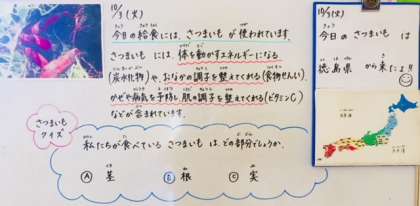 10/3(火)
今日の給食には、さつまいもが使われています。
さつまいもには、体を動かすエネルギーになる
(炭水化物)や、おなかの調子を整えてくれる(食物せんい)
かぜや病気を予防し肌の調子を整えてくれる(ビタミンC)
などが含まれています。
さつまいも
クイズ
私たちが食べているさつまいもは、どの部分でしょうか。
Ⓐ 茎 Ⓑ 根 Ⓒ 実
10/3(火)
今日のさつまいもは
徳島県から来たよ!!